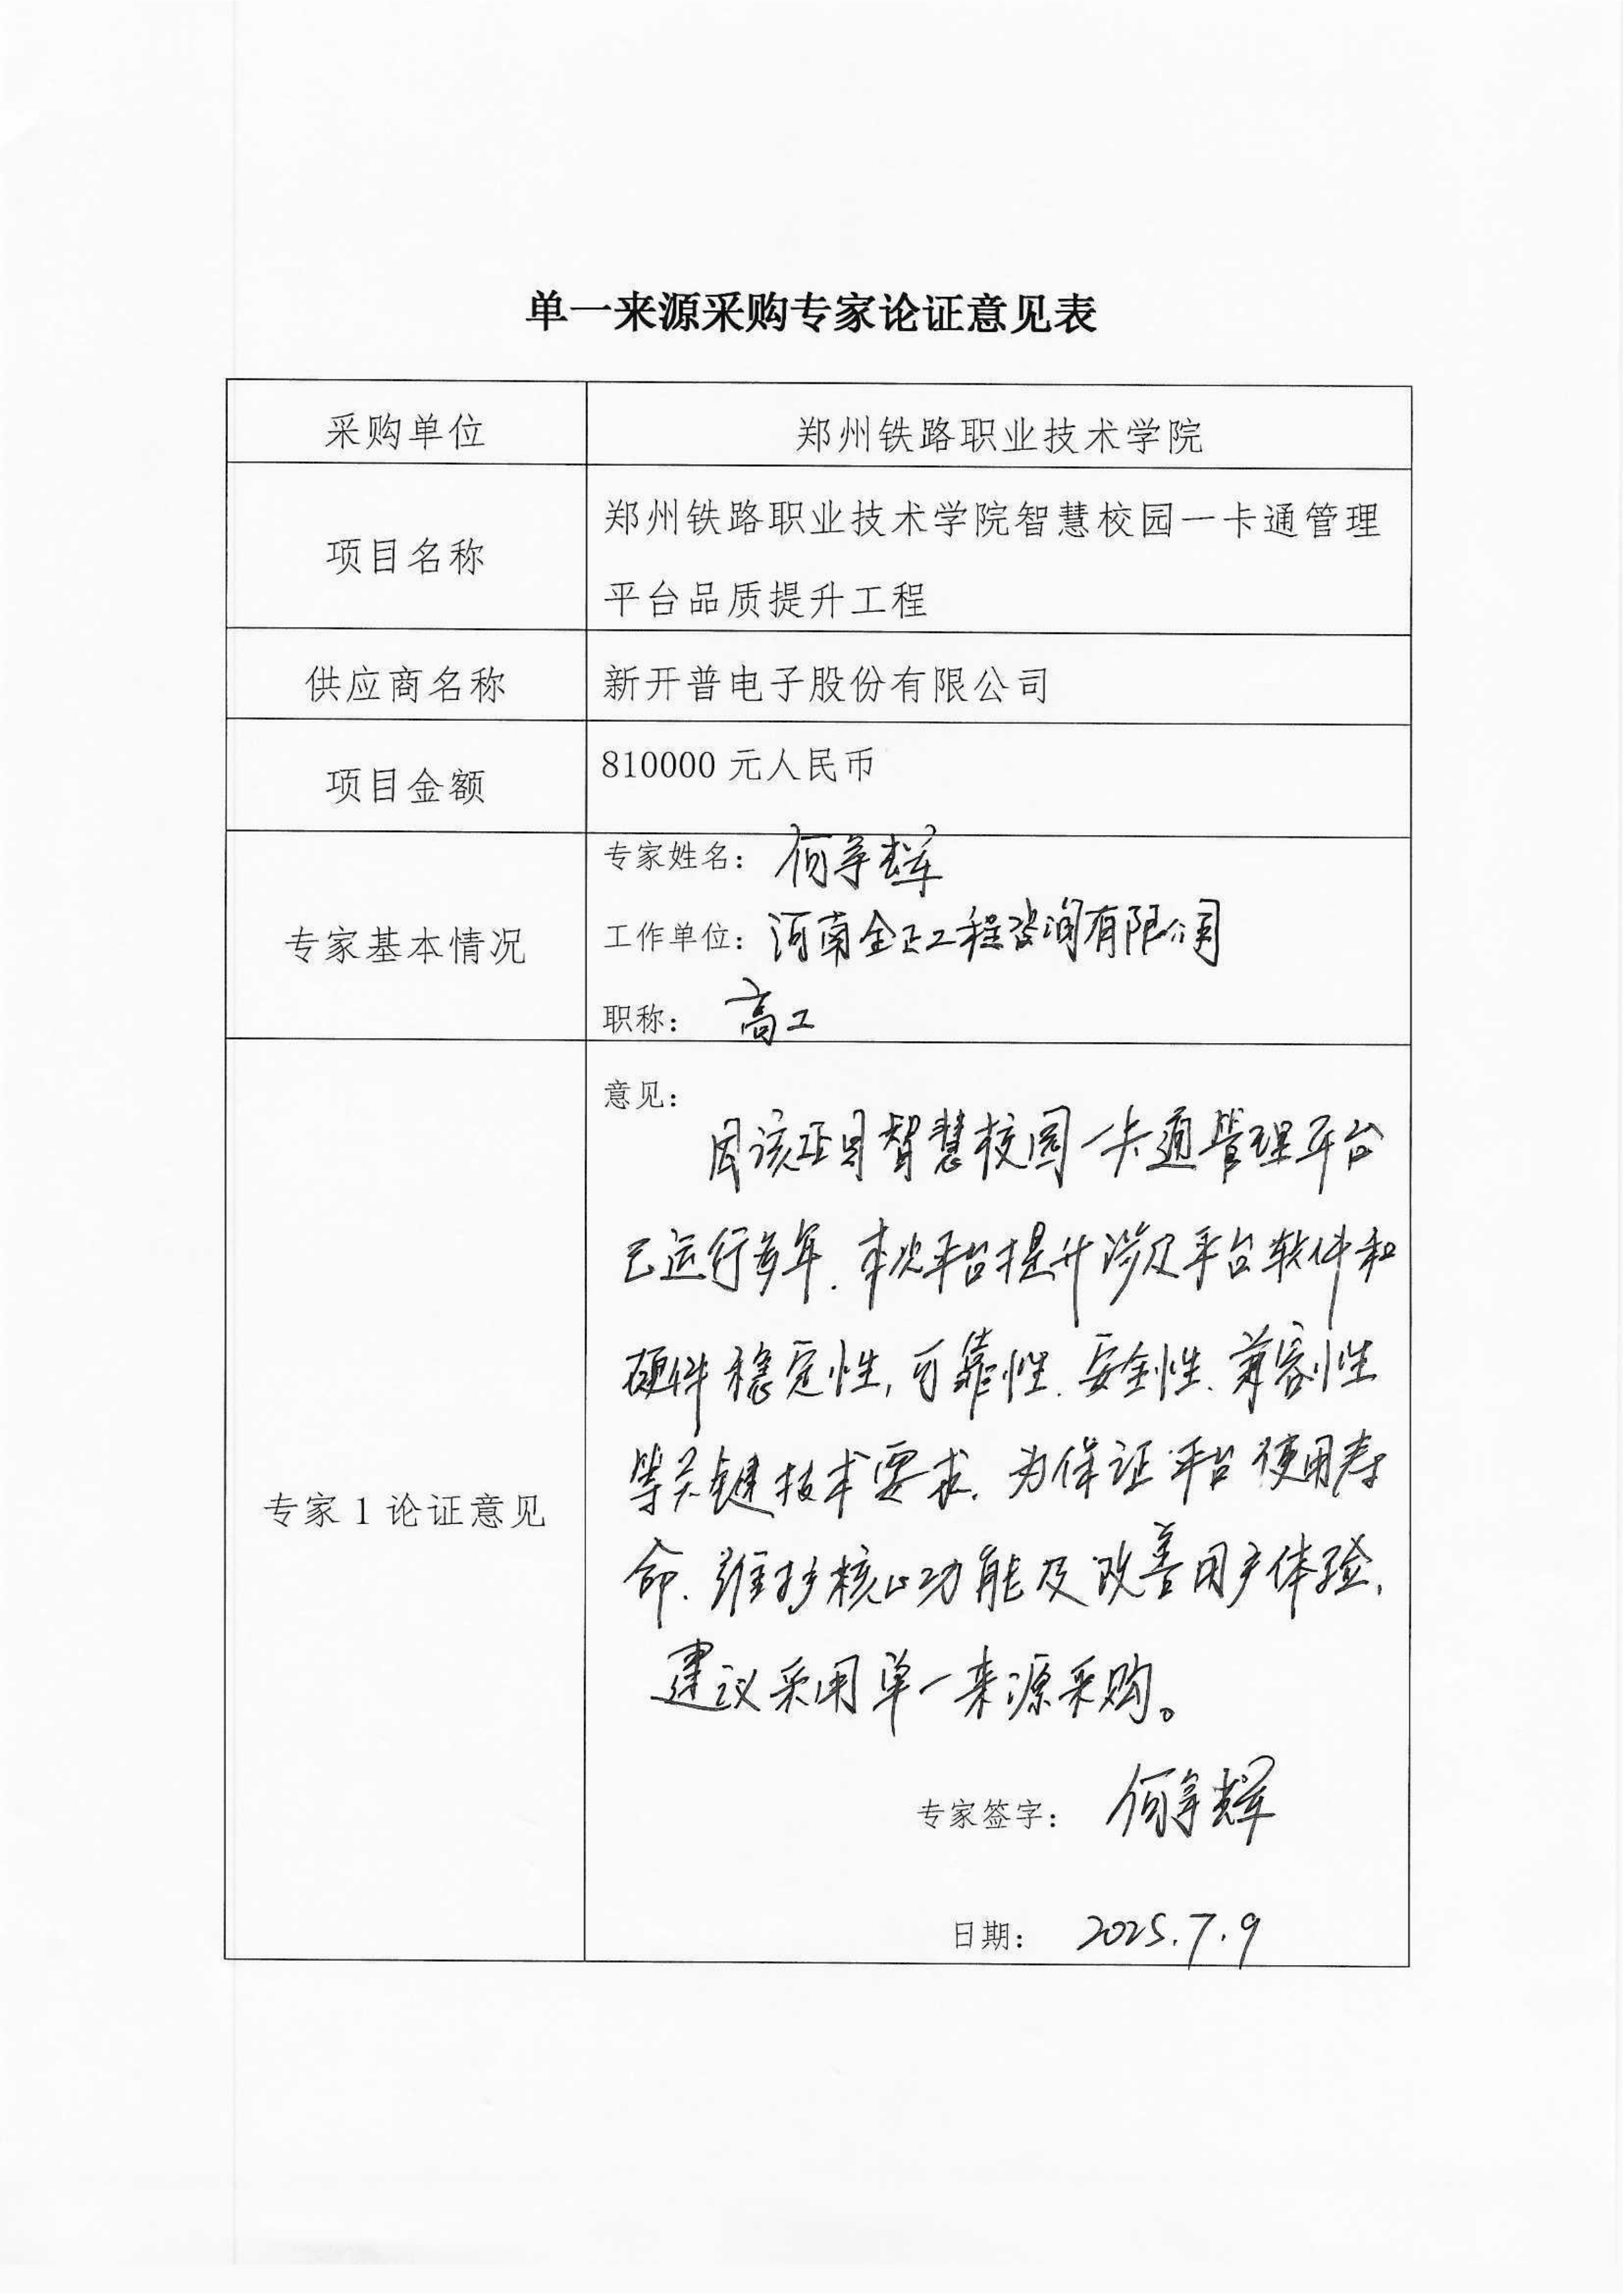 单一来源采购专家论证意见表
采购单位
郑州铁路职业技术学院
项目名称
郑州铁路职业技术学院智慧校园一卡通管理
平台品质提升工程
供应商名称
新开普电子股份有限公司
项目金额
810000 元人民币
专家基本情况
专家姓名：何争辉
工作单位：河南全正工程咨询有限公司
职称：高工
专家 1 论证意见
意见：
因该项目智慧校园一卡通管理平台
已运行多年、本次平台提升涉及平台软件和
硬件稳定性,可靠性、安全性、兼容性
等关键技术要求、为保证平台使用寿
命、维护核心功能及改善用户体验、
建议采用单一来源采购。
专家签字：何争辉
日期：2025.7.9